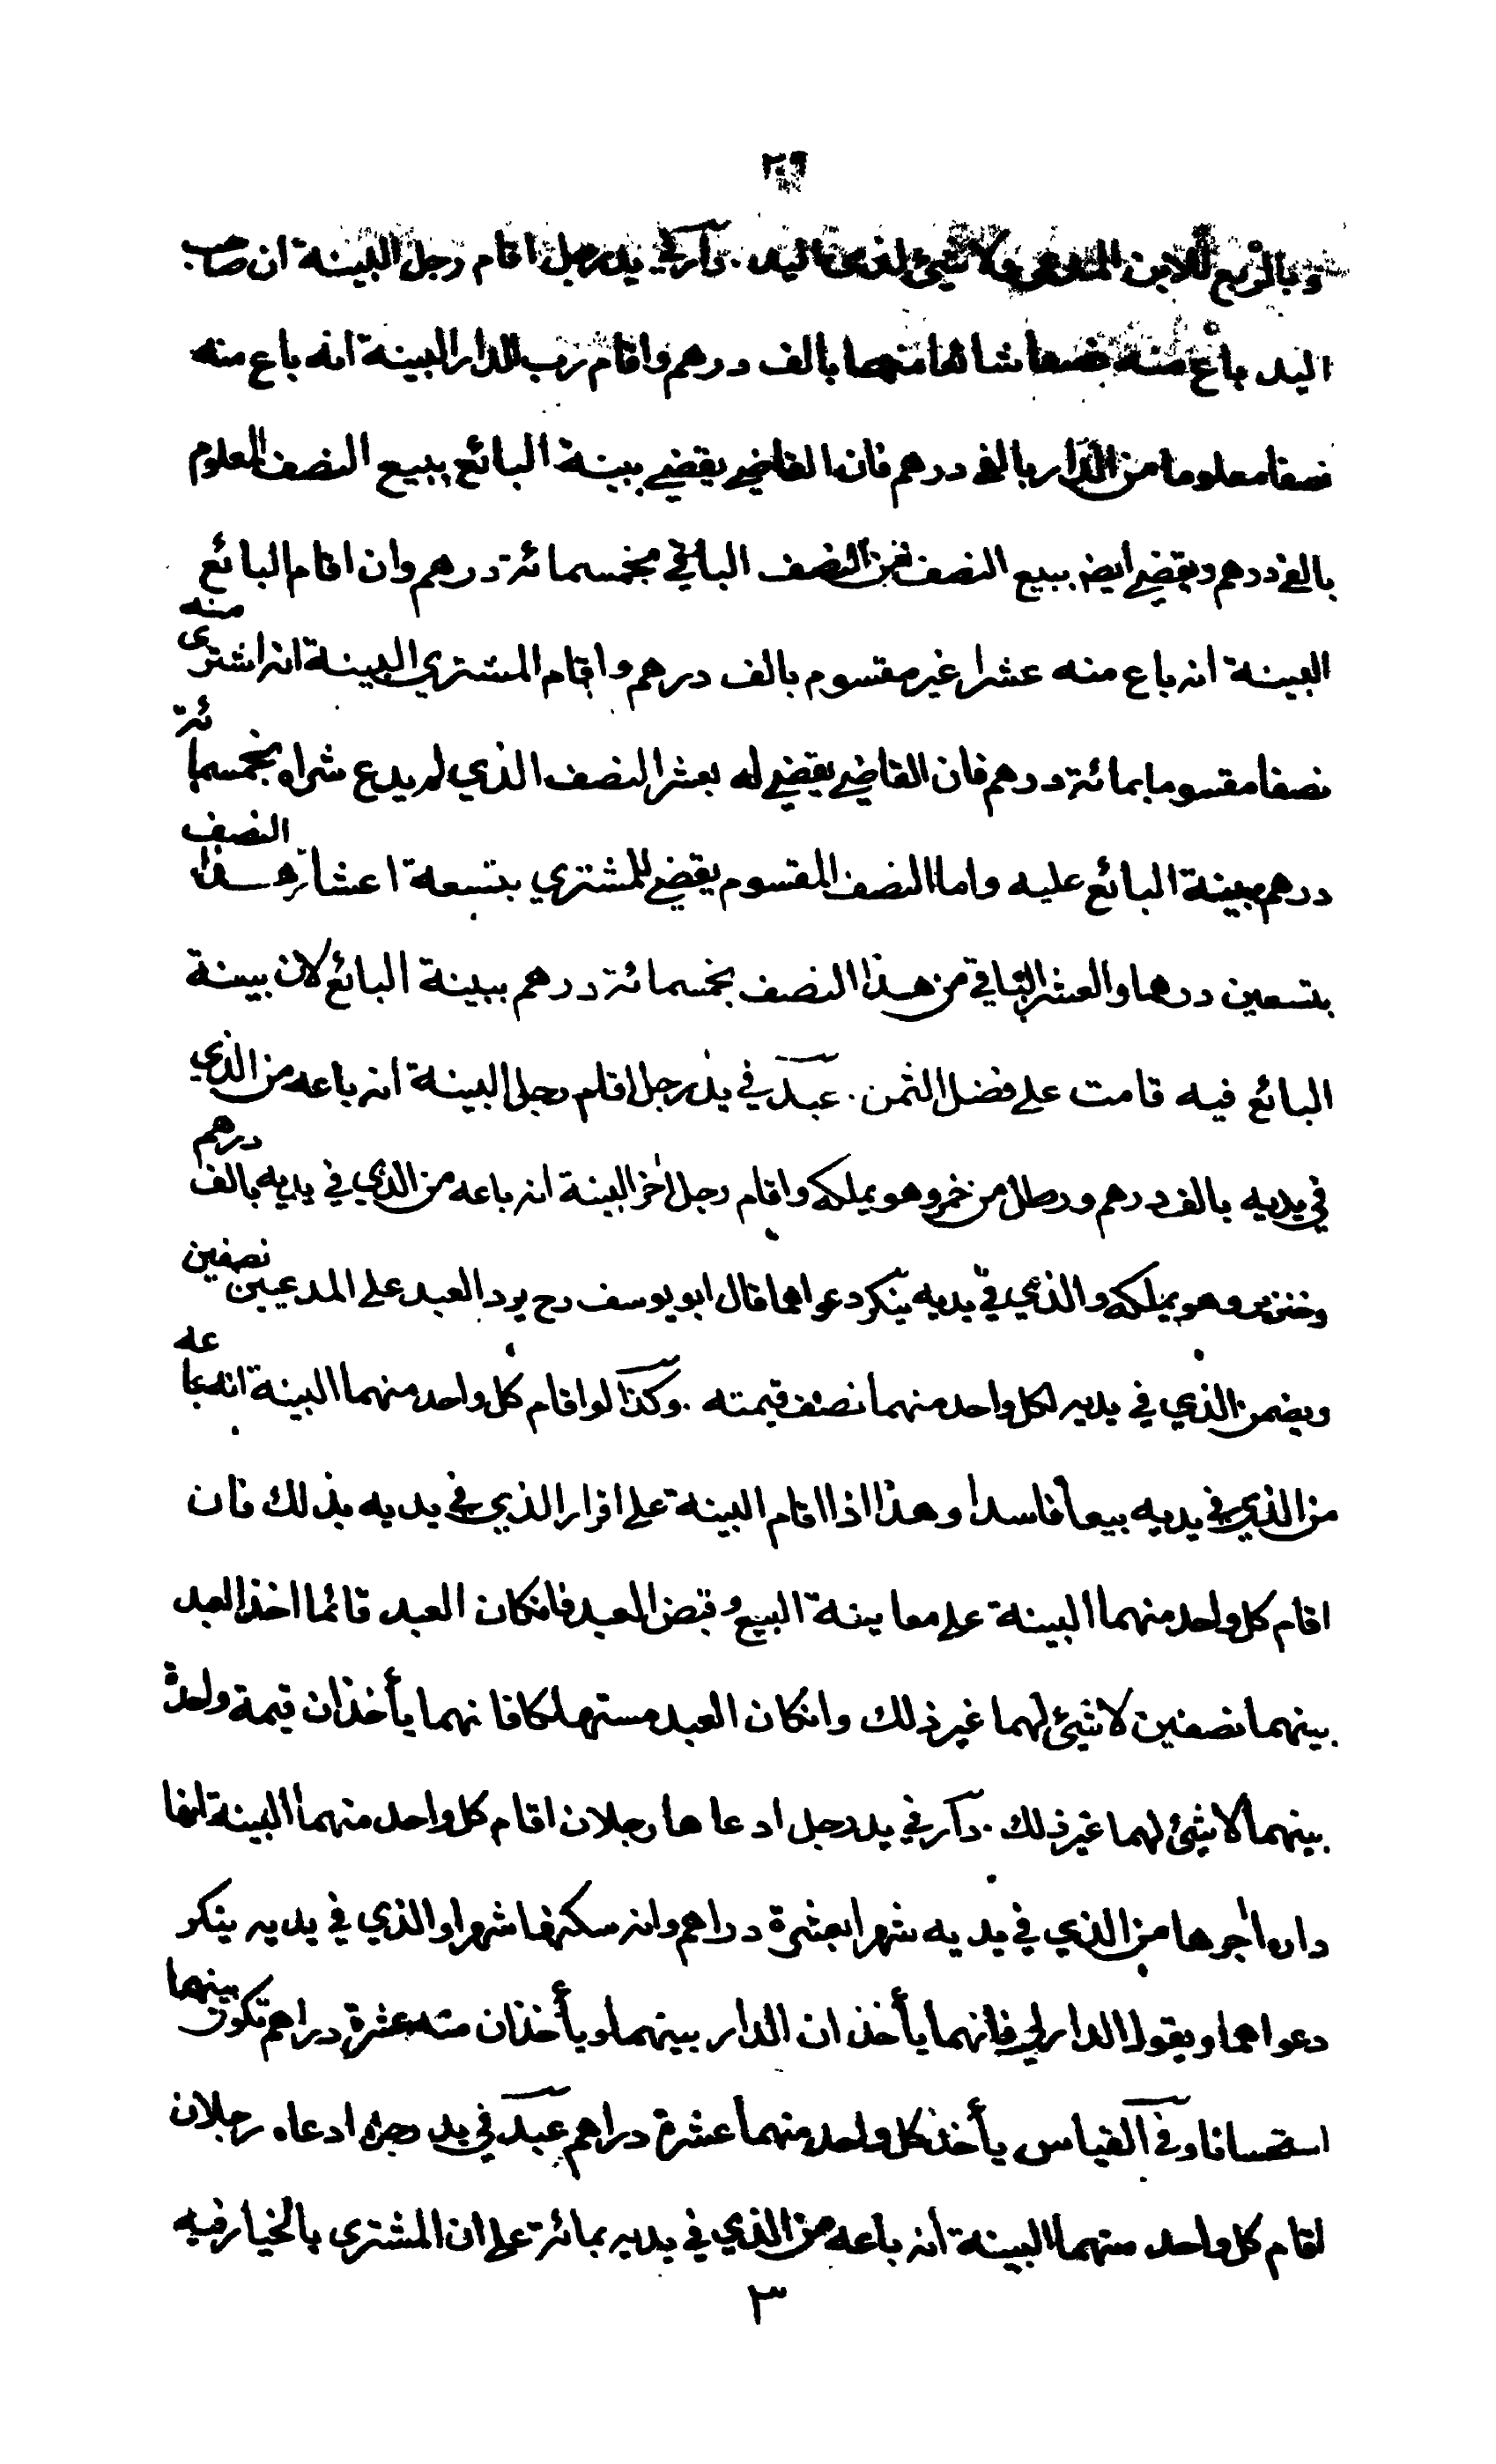 ٢٩
وبالربع للابن المدعى ولا شيئ لذى اليد . دار في يد رجل اقام رجل البينة ان صاحب
اليد باع منه نصفا شائعا منها بالف درهم واقام رب الدار البينة انه باع منه
نصفا معلوما من الدار بالف درهم فان القاضي يقضي ببينة البائع ببيع النصف المعلوم
بالف درهم ويقضي ايضا ببيع النصف من النصف الباقي بخمسمائة درهم وان اقام البائع
البينة انه باع منه عشرا غير مقسوم بالف درهم واقام المشتري البينة انه اشترى منه
نصفا مقسوما بمائة درهم فان القاضي يقضي له بعشر النصف الذي لم يدع شراه بخمسمائة
درهم ببينة البائع عليه واما النصف المقسوم يقضي للمشتري بتسعة اعشار هذا النصف
بتسعين درهما والعشر الباقي من هذا النصف بخمسمائة درهم ببينة البائع لان بينة
البائع فيه قامت على فضل الثمن . عبد في يد رجل اقام رجل البينة انه باعه من الذي
في يديه بالف درهم ورطل من خمر وهو يملكه واقام رجل اخر البينة انه باعه من الذي في يديه بالف درهم
وخنزير وهو يملكه والذي في يديه ينكر دعواهما قال ابو يوسف رح يرد العبد على المدعيين نصفين
ويضمن الذي في يديه لكل واحد منهما نصف قيمته . وكذا لو اقام كل واحد منهما البينة انه باعه
من الذي في يديه بيعا فاسدا وهذا اذا اقام البينة على اقرار الذي في يديه بذلك فان
اقام كل واحد منهما البينة على معاينة البيع وقبض العبد فانكان العبد قائما اخذ العبد
بينهما نصفين لا شيئ لهما غير ذلك وانكان العبد مستهلكا فانهما يأخذان قيمة واحدة
بينهما لا شيئ لهما غير ذلك . دار في يد رجل ادعاها رجلان اقام كل واحد منهما البينة انها
داره اجرها من الذي في يديه شهرا بعشرة دراهم وانه سكنها شهرا والذي في يديه ينكر
دعواهما ويقول الدار لي فانهما يأخذان الدار بينهما ويأخذان منه عشرة دراهم تكون بينهما
استحسانا وفي القياس يأخذ كل واحد منهما عشرة دراهم عبد في يد رجل ادعاه رجلان
اقام كل واحد منهما البينة انه باعه من الذي في يديه بمائة على ان المشتري بالخيار فيه
٣